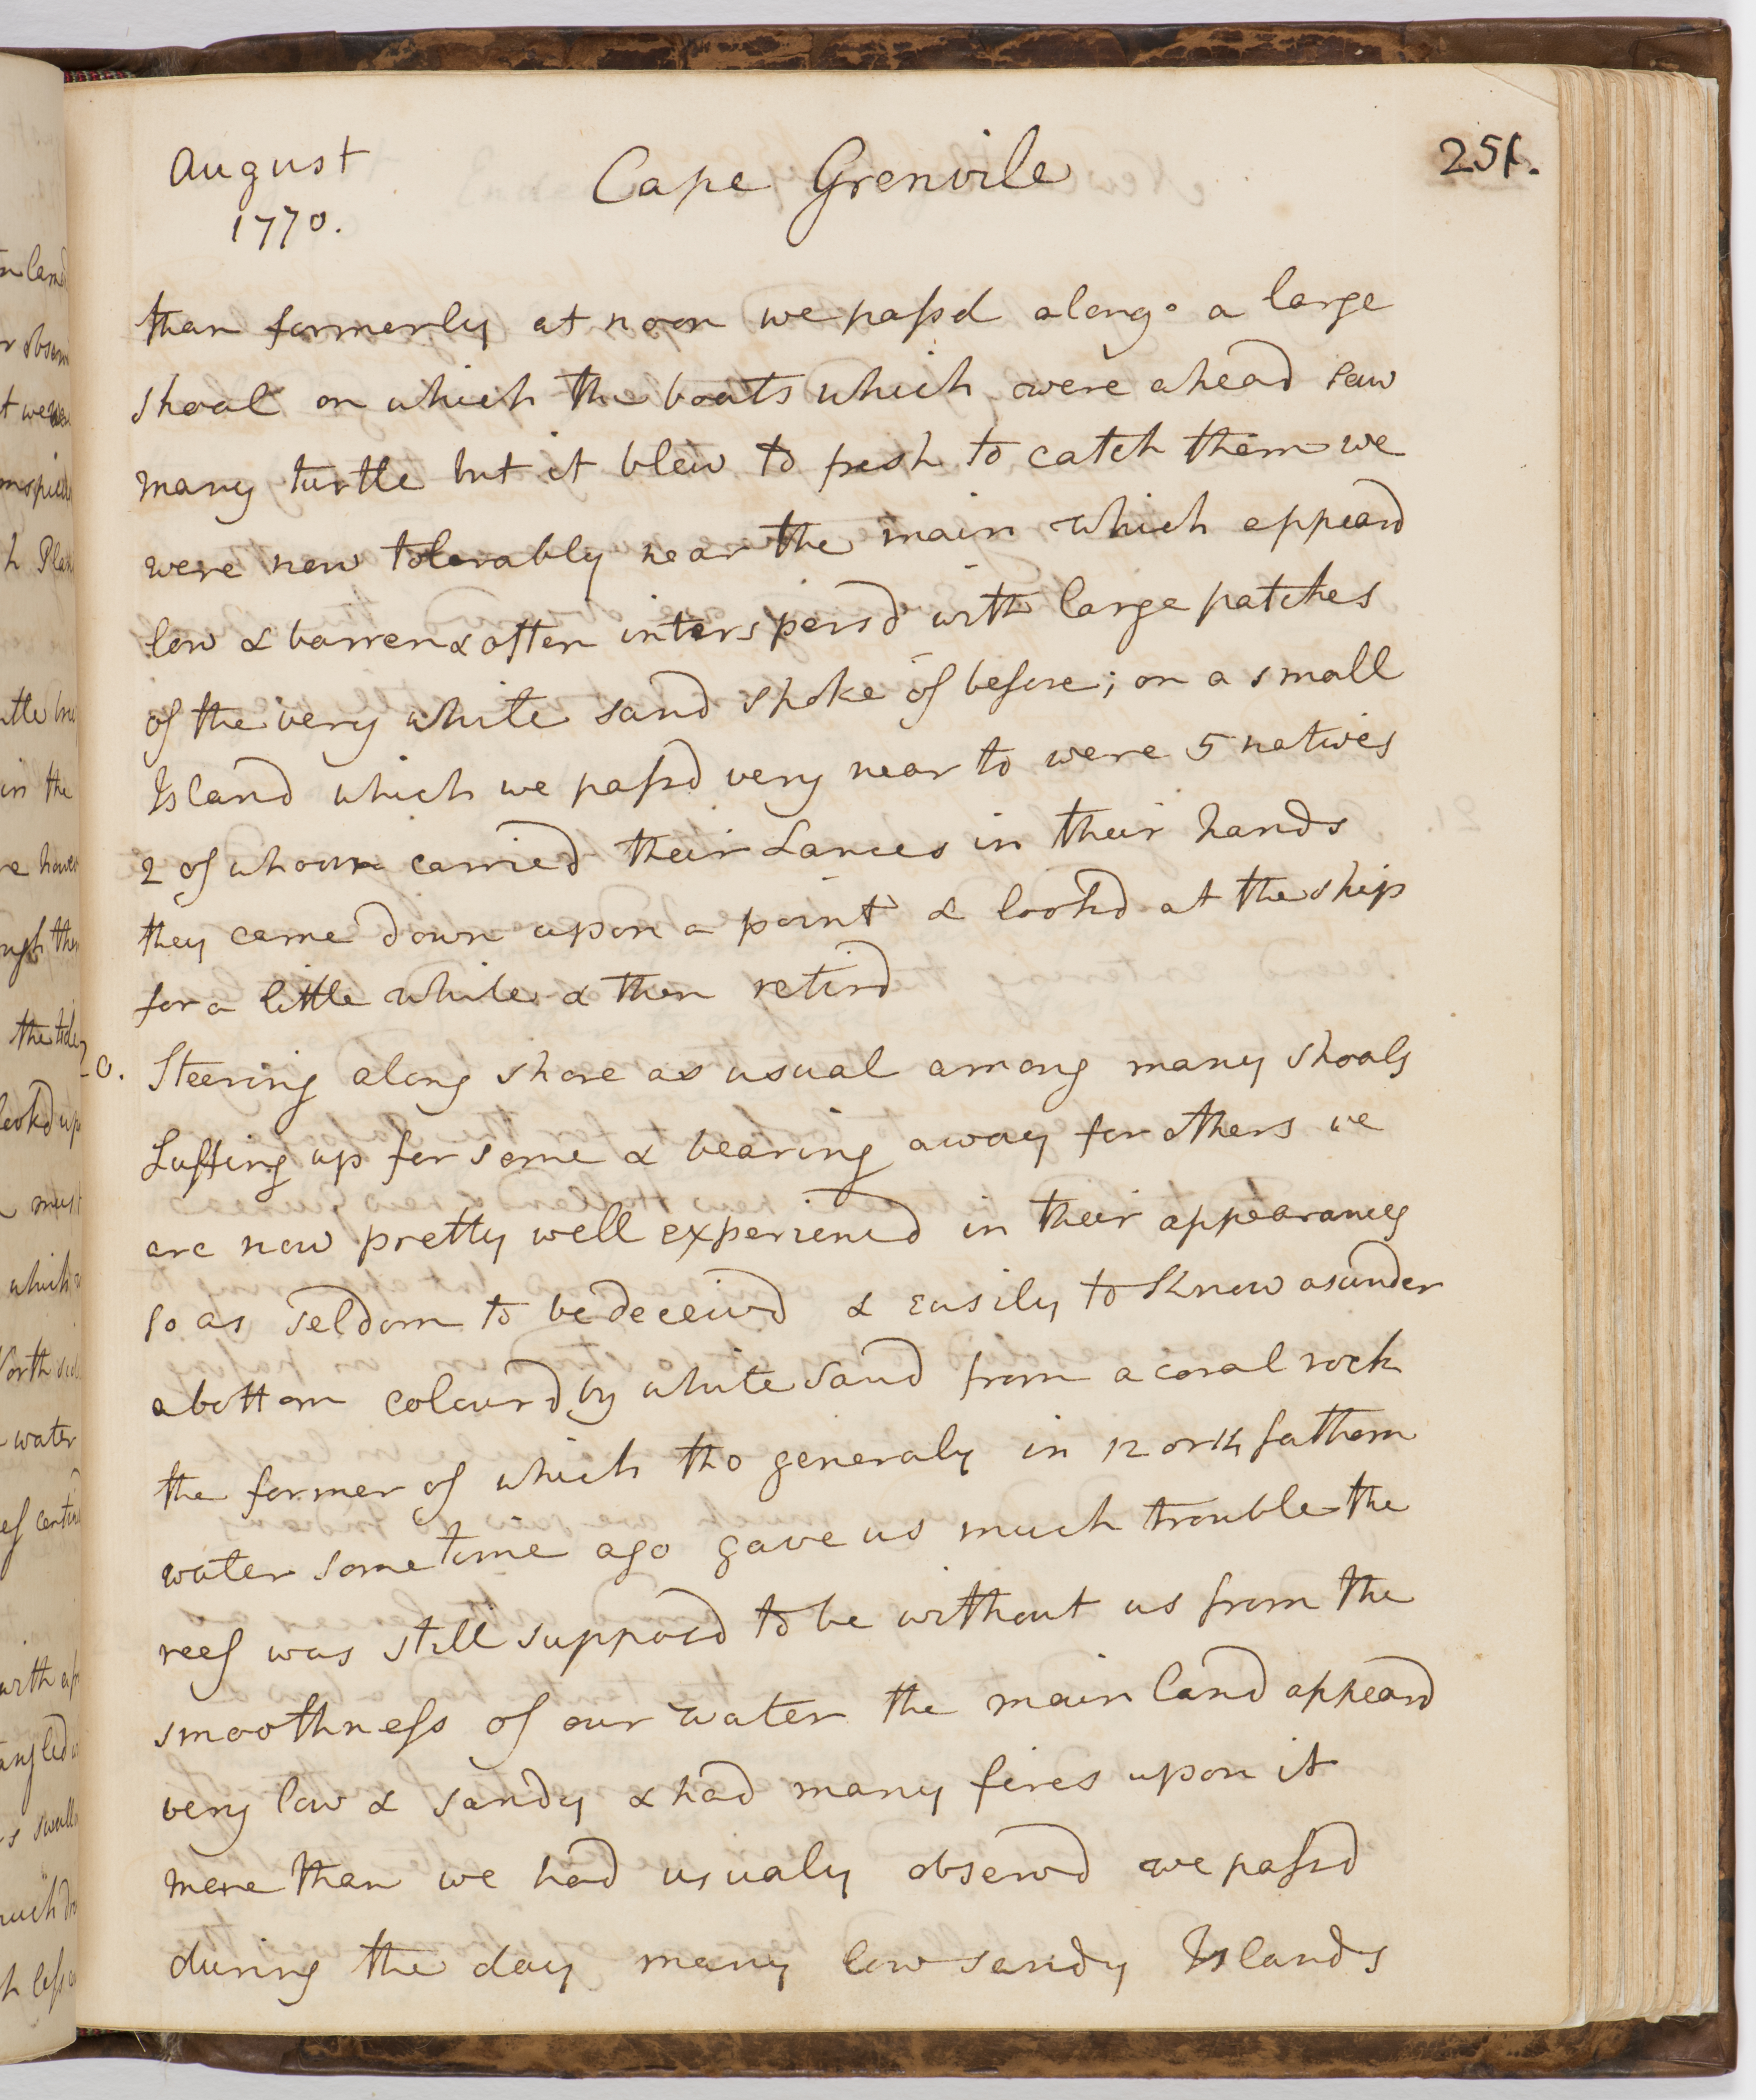 August
1770.
Cape Grenvile
251.
than formerly at noon we passd along a large
shoal on which the boats which were ahead saw
many turtle but it blew to fresh to catch them we
were now tolerably near the main which appeard
low & barren & often interspersd with large patches
of the very white sand spoke of before; on a small
Island which we passd very near to were 5 natives
2 of whoum carried their Lances in their hands
they came down upon a point & lookd at the ship
for a little while & then retird
20. Steering along shore as usual among many shoals
Luffing up for some & bearing away for others we
are now pretty well experiencd in their appearances
so as seldom to be deceivd & easily to know asunder
a bottom colourd by white sand from a coral rock
the former of which tho generaly in 12 or 14 fathom
water some time ago gave us much trouble the
reef was still supposd to be without us from the
smoothness of our water the main land appeard
very low & sandy & had many fires upon it
more than we had usualy observd we passd
during the day many low sandy Islands